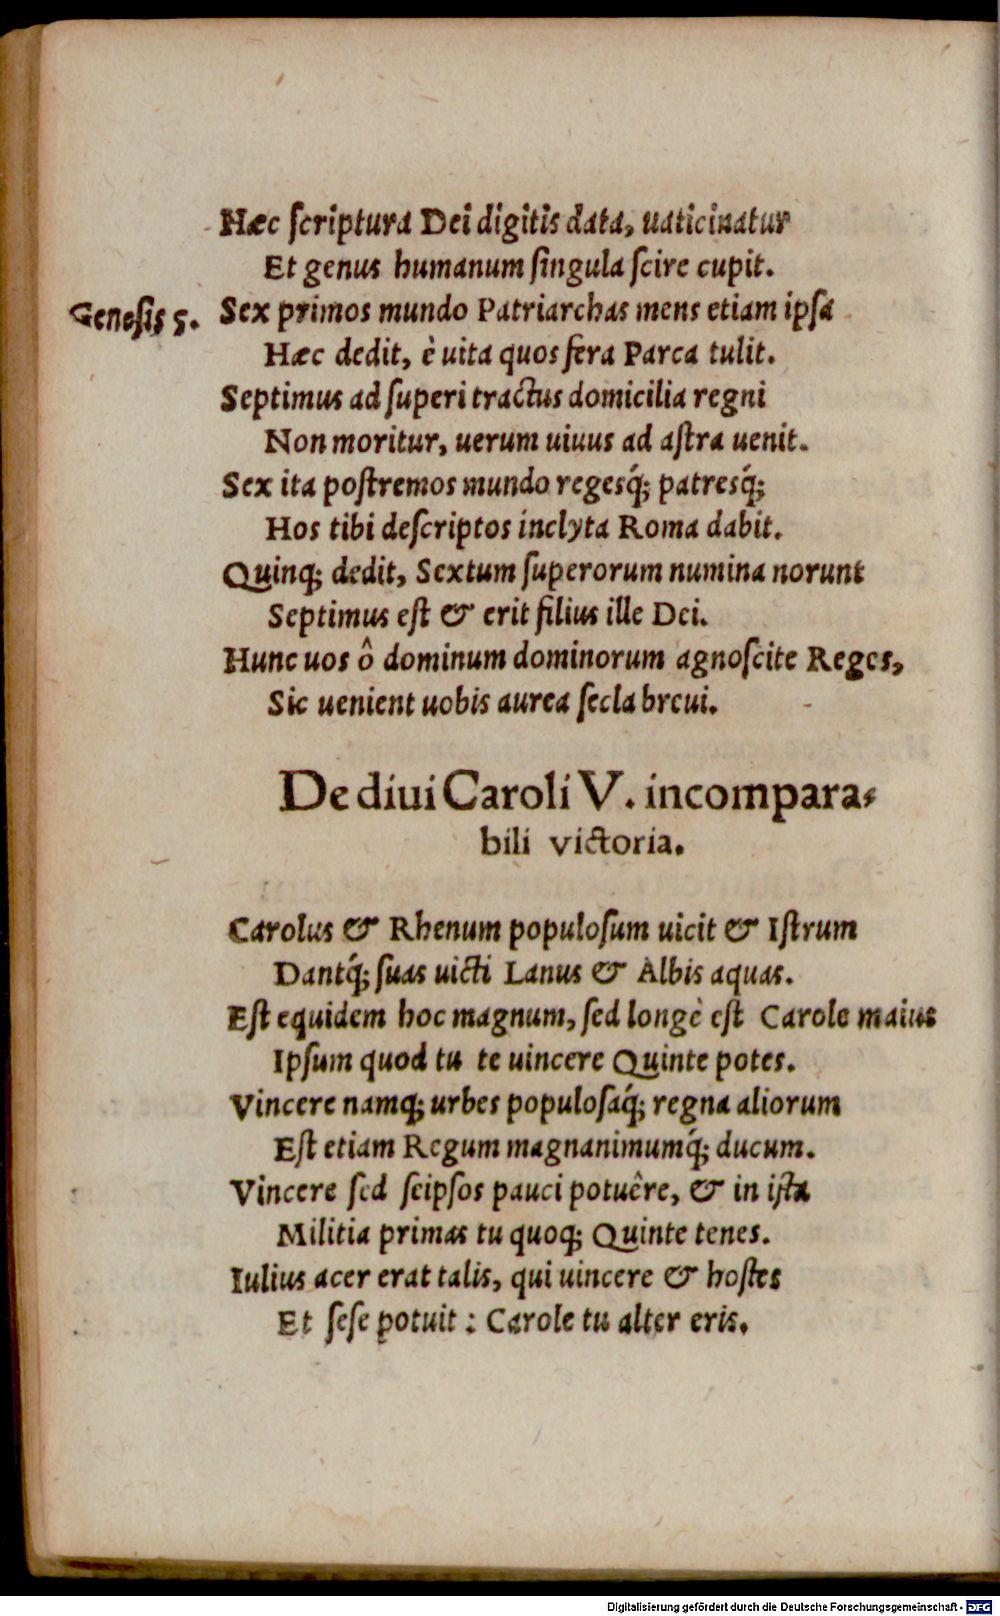 Hæc ſcriptura Dei digitis data, uaticinatur
Et genus humanum ſingula ſcire cupit.
Geneſis 5.
Sex primos mundo Patriarchas mens etiam ipſa
Hæc dedit, è uita quos fera Parca tulit.
Septimus ad ſuperi tractus domicilia regni
Non moritur, uerum uiuus ad aſtra uenit.
Sex ita poſtremos mundo regesq́; patresq́;
Hos tibi deſcriptos inclyta Roma dabit.
Quinq; dedit, Sextum ſuperorum numina norunt
Septimus eſt & erit filius ille Dei.
Hunc uos ô dominum dominorum agnoſcite Reges,
Sic uenient uobis aurea ſecla breui.
De diui Caroli V. incompara-
bili victoria.
Carolus & Rhenum populoſum uicit & Iſtrum
Dantq́; ſuas uicti Lanus & Albis aquas.
Eſt equidem hoc magnum, ſed longè eſt Carole maius
Ipſum quod tu te uincere Quinte potes.
Vincere namq; urbes populoſaq́; regna aliorum
Eſt etiam Regum magnanimumq́; ducum.
Vincere ſed ſeipſos pauci potuêre, & in iſta
Militia primas tu quoq; Quinte tenes.
Iulius acer erat talis, qui uincere & hoſtes
Et ſeſe potuit : Carole tu alter eris.
Digitalisierung gefördert durch die Deutsche Forschungsgemeinschaft - DFG